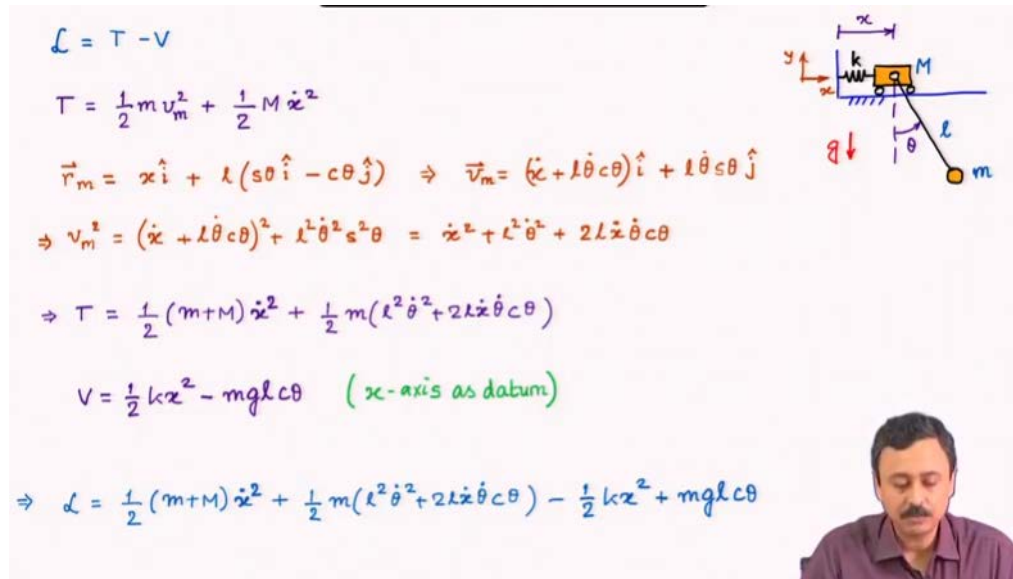 ℒ = T - V
T = 1/2 m v_m² + 1/2 M ẋ²
r⃗_m = x î + l (sθ î - cθ ĵ) ⇒ v⃗_m = (ẋ + l θ̇ cθ) î + l θ̇ sθ ĵ
⇒ v_m² = (ẋ + l θ̇ cθ)² + l² θ̇² s²θ = ẋ² + l² θ̇² + 2l ẋ θ̇ cθ
⇒ T = 1/2 (m+M) ẋ² + 1/2 m (l² θ̇² + 2l ẋ θ̇ cθ)
V = 1/2 k x² - mgl cθ (x-axis as datum)
⇒ ℒ = 1/2 (m+M) ẋ² + 1/2 m (l² θ̇² + 2l ẋ θ̇ cθ) - 1/2 k x² + mgl cθ
x
y
k
M
x
l
g
θ
m